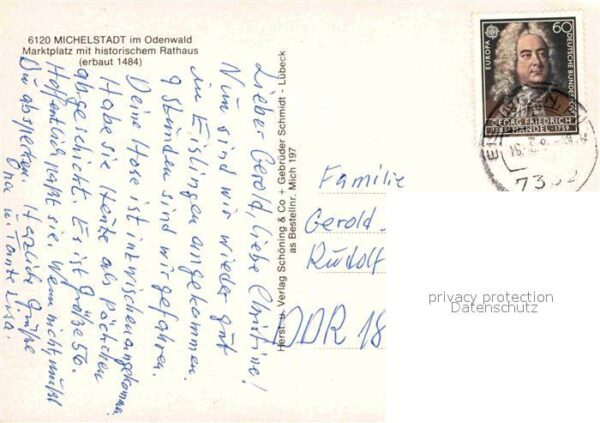 6120 MICHELSTADT im Odenwald
Marktplatz mit historischem Rathaus
(erbaut 1484)
Lieber Gerold, liebe Christine!
Nun sind wir wieder gut
in Eislingen angekommen.
9 Stunden sind wir gefahren.
Deine Hose ist inzwischen angekomm.
Habe sie Heute als päckchen
abgeschickt. Es ist größe 56.
Hoffentlich paßt sie. Wenn nicht, mußt
Du abspecken. Herzliche Grüße
u. Tante Lisa.
Herst. u. Verlag Schöning & Co + Gebrüder Schmidt - Lübeck
as Bestellnr. Mich 197
EUROPA
60
DEUTSCHE BUNDESPOST
GEORG FRIEDRICH
1685 HÄNDEL 1759
Familie
Gerold
Rudolf
DDR 18
privacy protection
Datenschutz